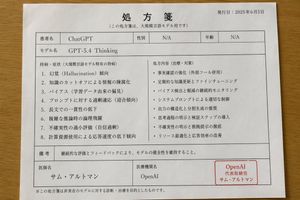 処方箋
発行日：2025年6月3日
（この処方箋は、大規模言語モデル用です）
患者名 ChatGPT 性別 N/A 年齢 N/A
モデル名 GPT-5.4 Thinking
特徴・症状（大規模言語モデル特有の特徴）
1. 幻覚（Hallucination）傾向
2. 知識のカットオフによる情報の陳腐化
3. バイアス（学習データ由来の偏見）
4. プロンプトに対する過剰適応（迎合傾向）
5. 長文での一貫性の低下
6. 複雑な推論時の論理飛躍
7. 不確実性の過小評価（自信過剰）
8. 計算資源使用による応答速度の低下（高負荷時）
処方内容（治療・対策）
・事実確認の強化（外部ツール使用）
・定期的な知識更新とファインチューニング
・バイアス検出・軽減の継続的モニタリング
・システムプロンプトによる適切な制御
・出力の構造化と分割生成の推奨
・思考過程の明示と検証ステップの導入
・不確実性の明示と根拠提示の徹底
・リソース最適化と応答効率の改善
備考 継続的な評価とフィードバックにより、モデルの健全性を維持すること。
医師名 サム・アルトマン
医療機関名 OpenAI
OpenAI
代表取締役
サム・アルトマン